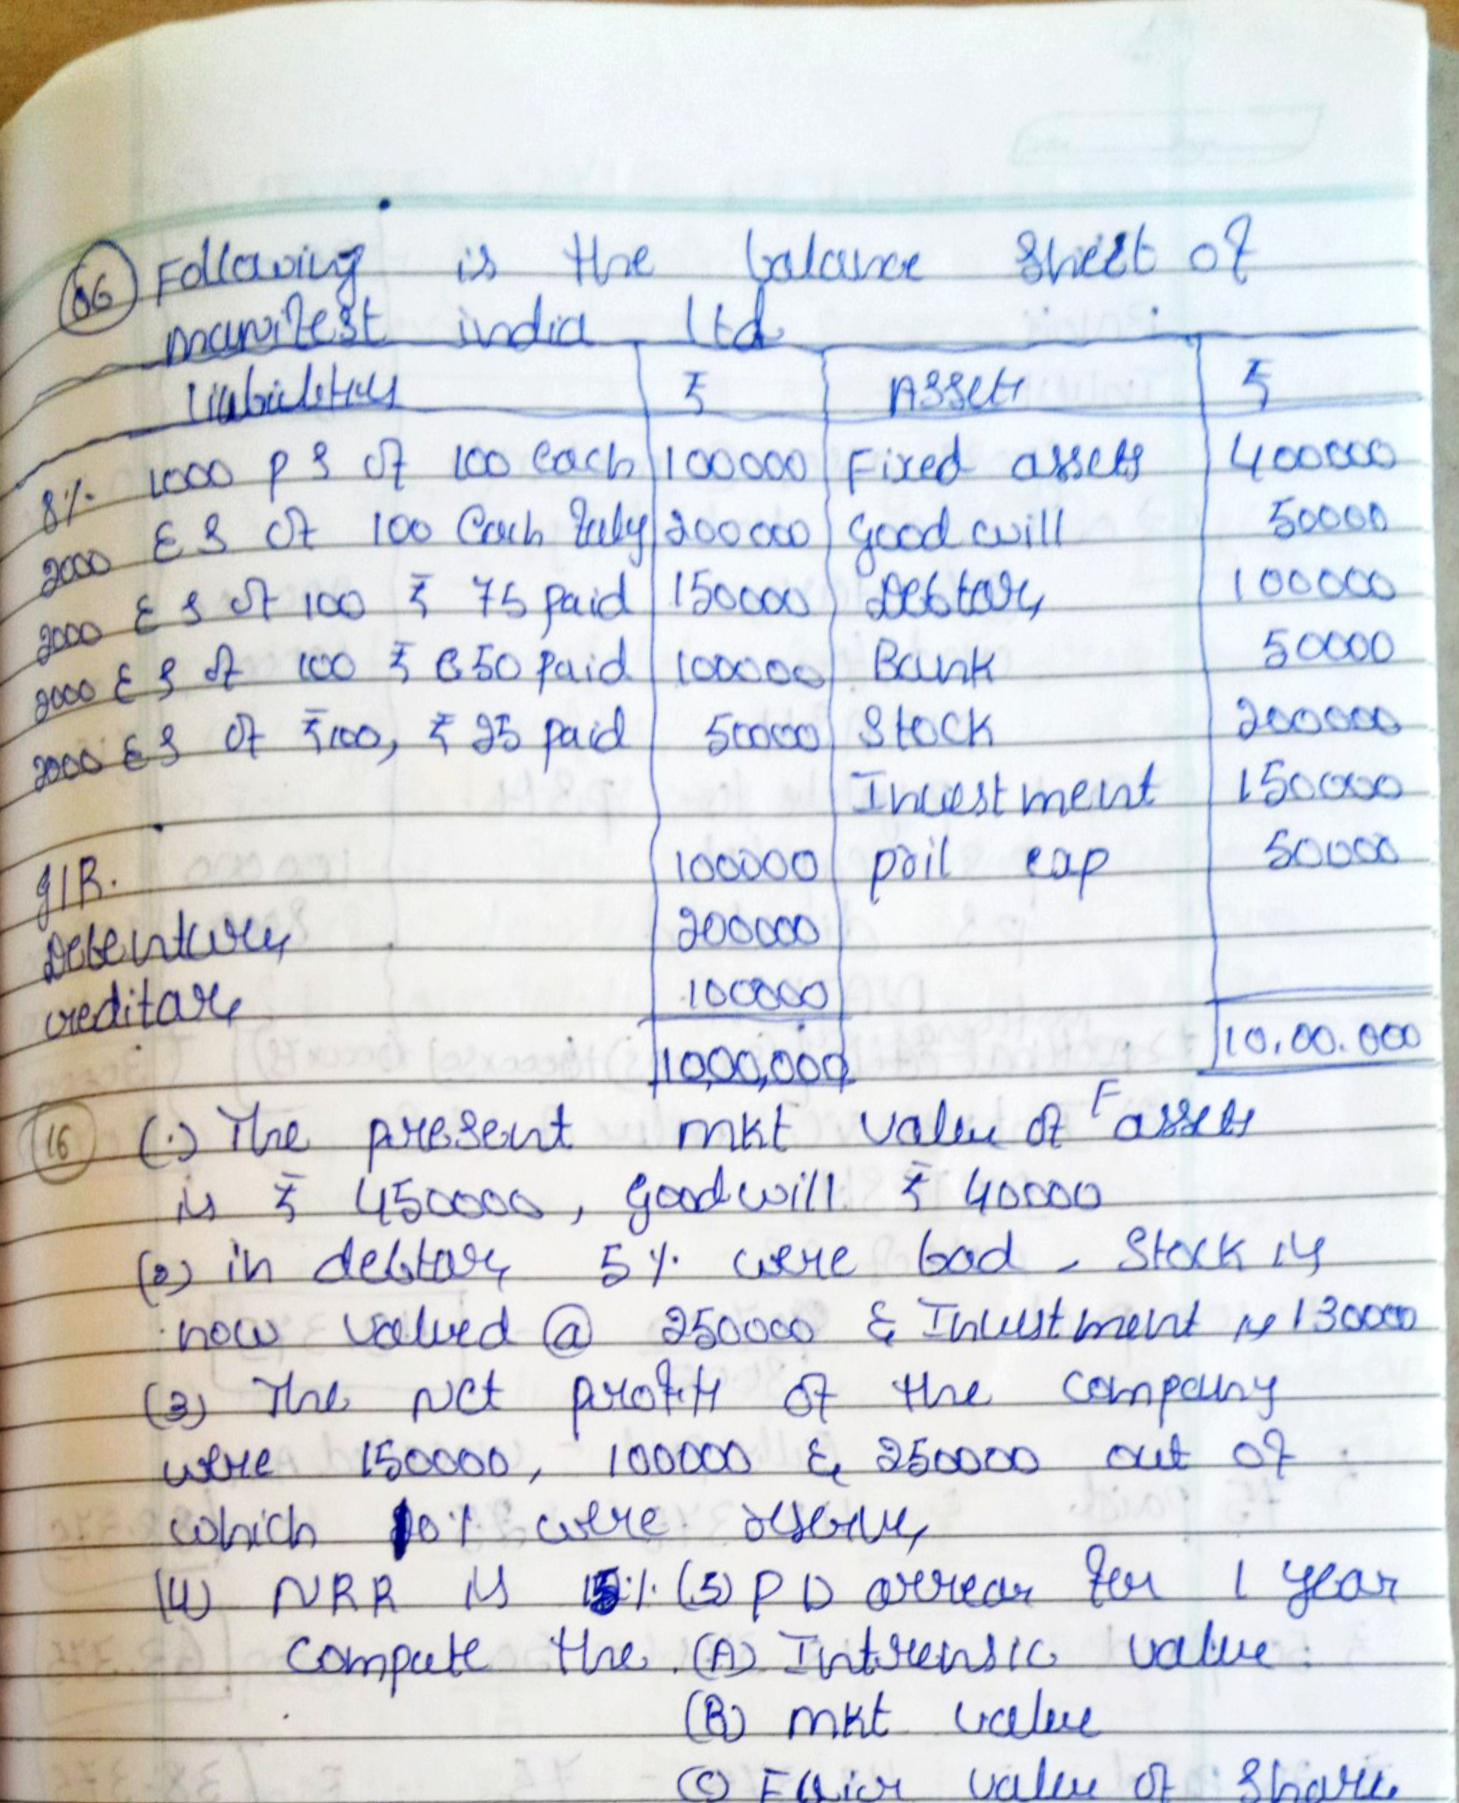 06 Following is the balance Sheet of
manifest india Ltd
Liabilities ₹ Assets ₹
8% 1000 P S of 100 each 100000 Fixed assets 400000
2000 E S of 100 Each fully 200000 Goodwill 50000
2000 E S of 100 ₹ 75 paid 150000 Debtors 100000
2000 E S of 100 ₹ 50 paid 100000 Bank 50000
2000 E S of ₹100, ₹ 25 paid 50000 Stock 200000
Investment 150000
G/R. 100000 cap 50000
Debenture, 200000
creditors 100000
10,00,000 10,00,000
16 (1) The present mkt value of F assets
is ₹ 450000, Goodwill ₹ 40000
(2) in debtors 5% were bad - Stock is
now valued @ 250000 & Investment is 130000
(3) The Net profit of the company
were 150000, 100000 & 250000 out of
which 10% were reserve,
(4) NRR is 15% (5) P D arrear for 1 year
Compute the (A) Intrensic value
(B) mkt value
(C) Fair value of Share